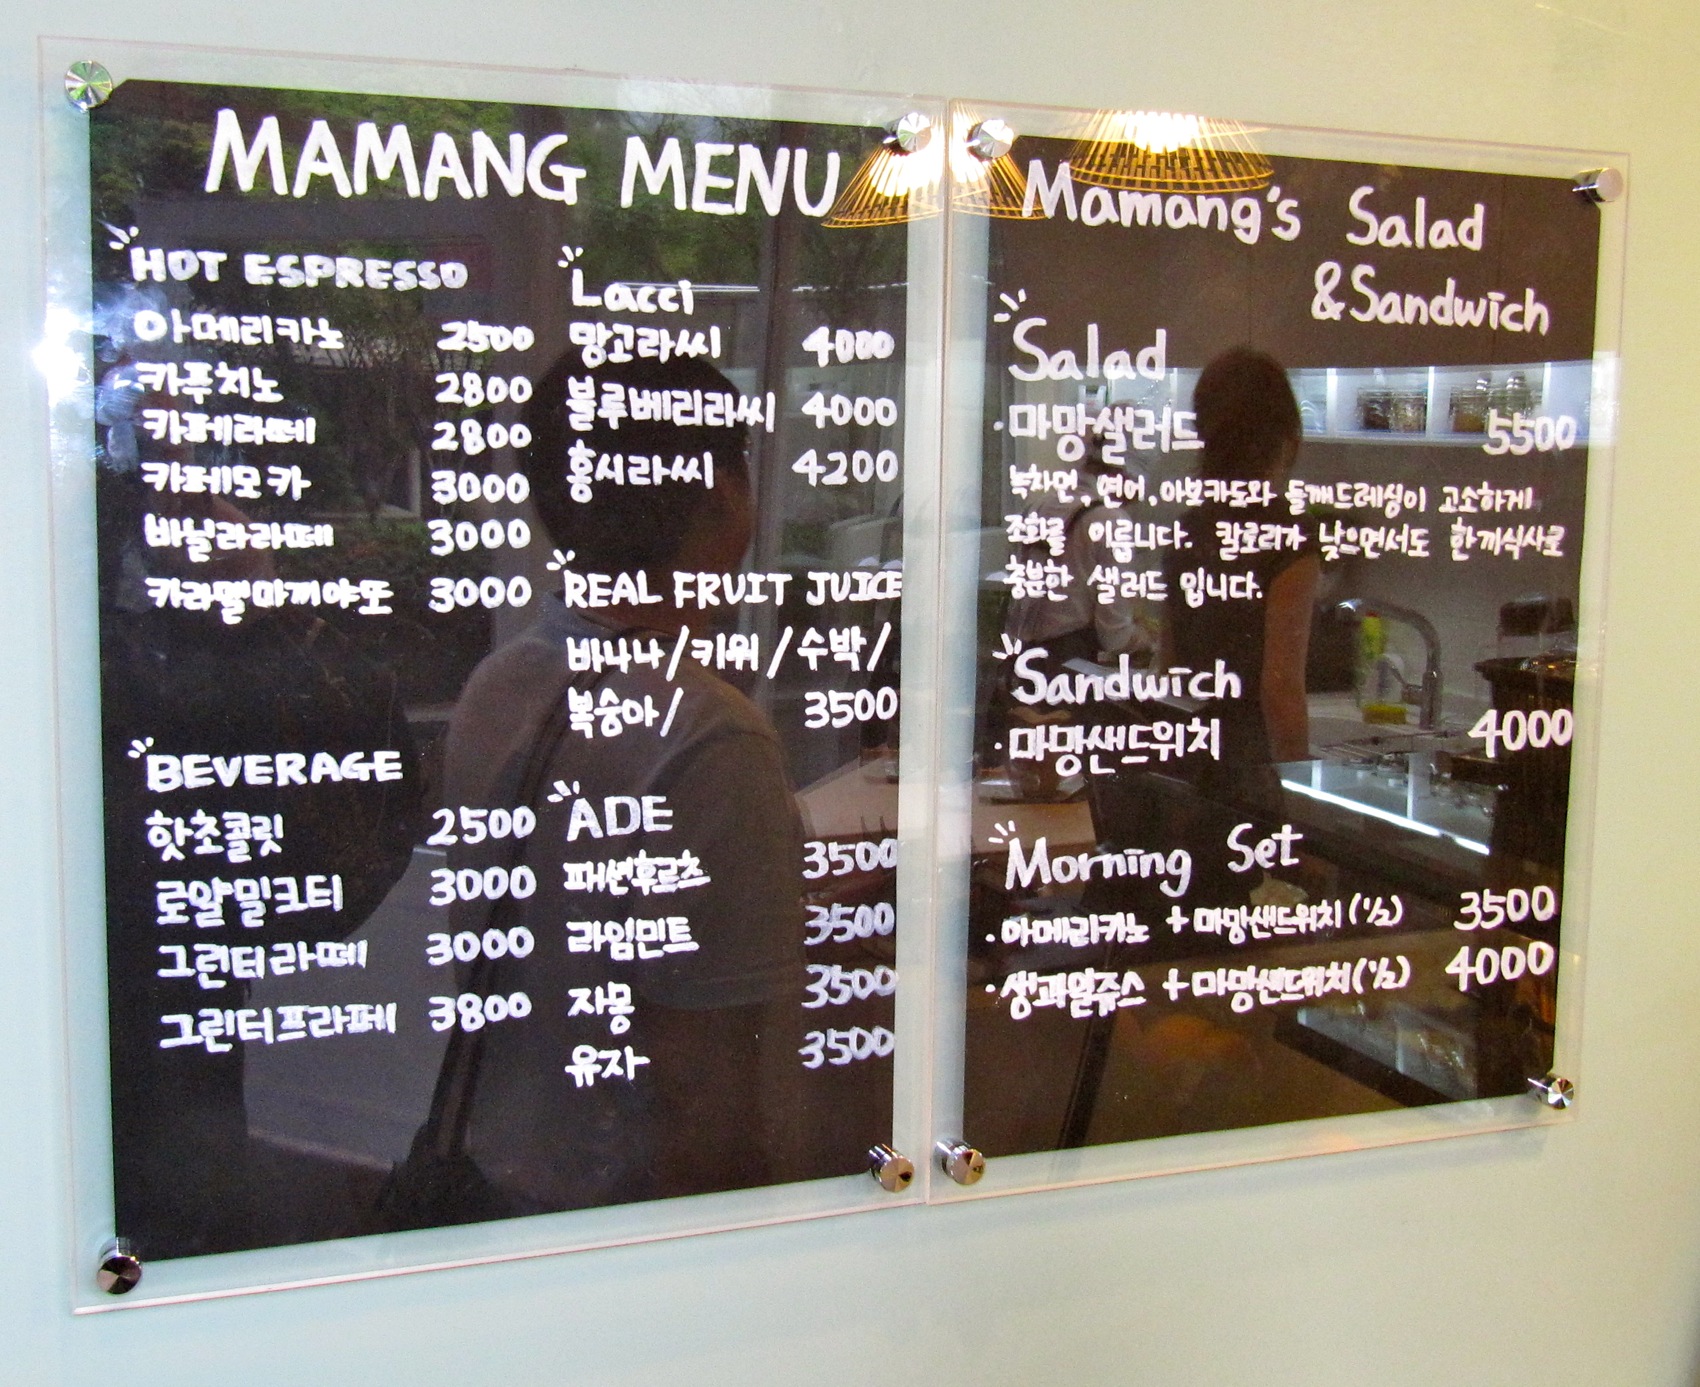 MAMANG MENU
HOT ESPRESSO
아메리카노 2500
카푸치노 2800
카페라떼 2800
카페모카 3000
바닐라라떼 3000
카라멜마끼야또 3000
BEVERAGE
핫초콜릿 2500
로얄밀크티 3000
그린티라떼 3000
그린티프라페 3800
Lacci
망고라씨 4000
블루베리라씨 4000
홍시라씨 4200
REAL FRUIT JUICE
바나나/키위/수박/
복숭아/ 3500
ADE
패션후르츠 3500
라임민트 3500
자몽 3500
유자 3500
Mamang's Salad
&Sandwich
Salad
·마망샐러드 5500
녹차면, 연어, 아보카도와 들깨드레싱이 고소하게
조화를 이룹니다. 칼로리가 낮으면서도 한끼식사로
충분한 샐러드 입니다.
Sandwich
·마망샌드위치 4000
Morning Set
·아메리카노 +마망샌드위치(1/2) 3500
·생과일쥬스 +마망샌드위치(1/2) 4000